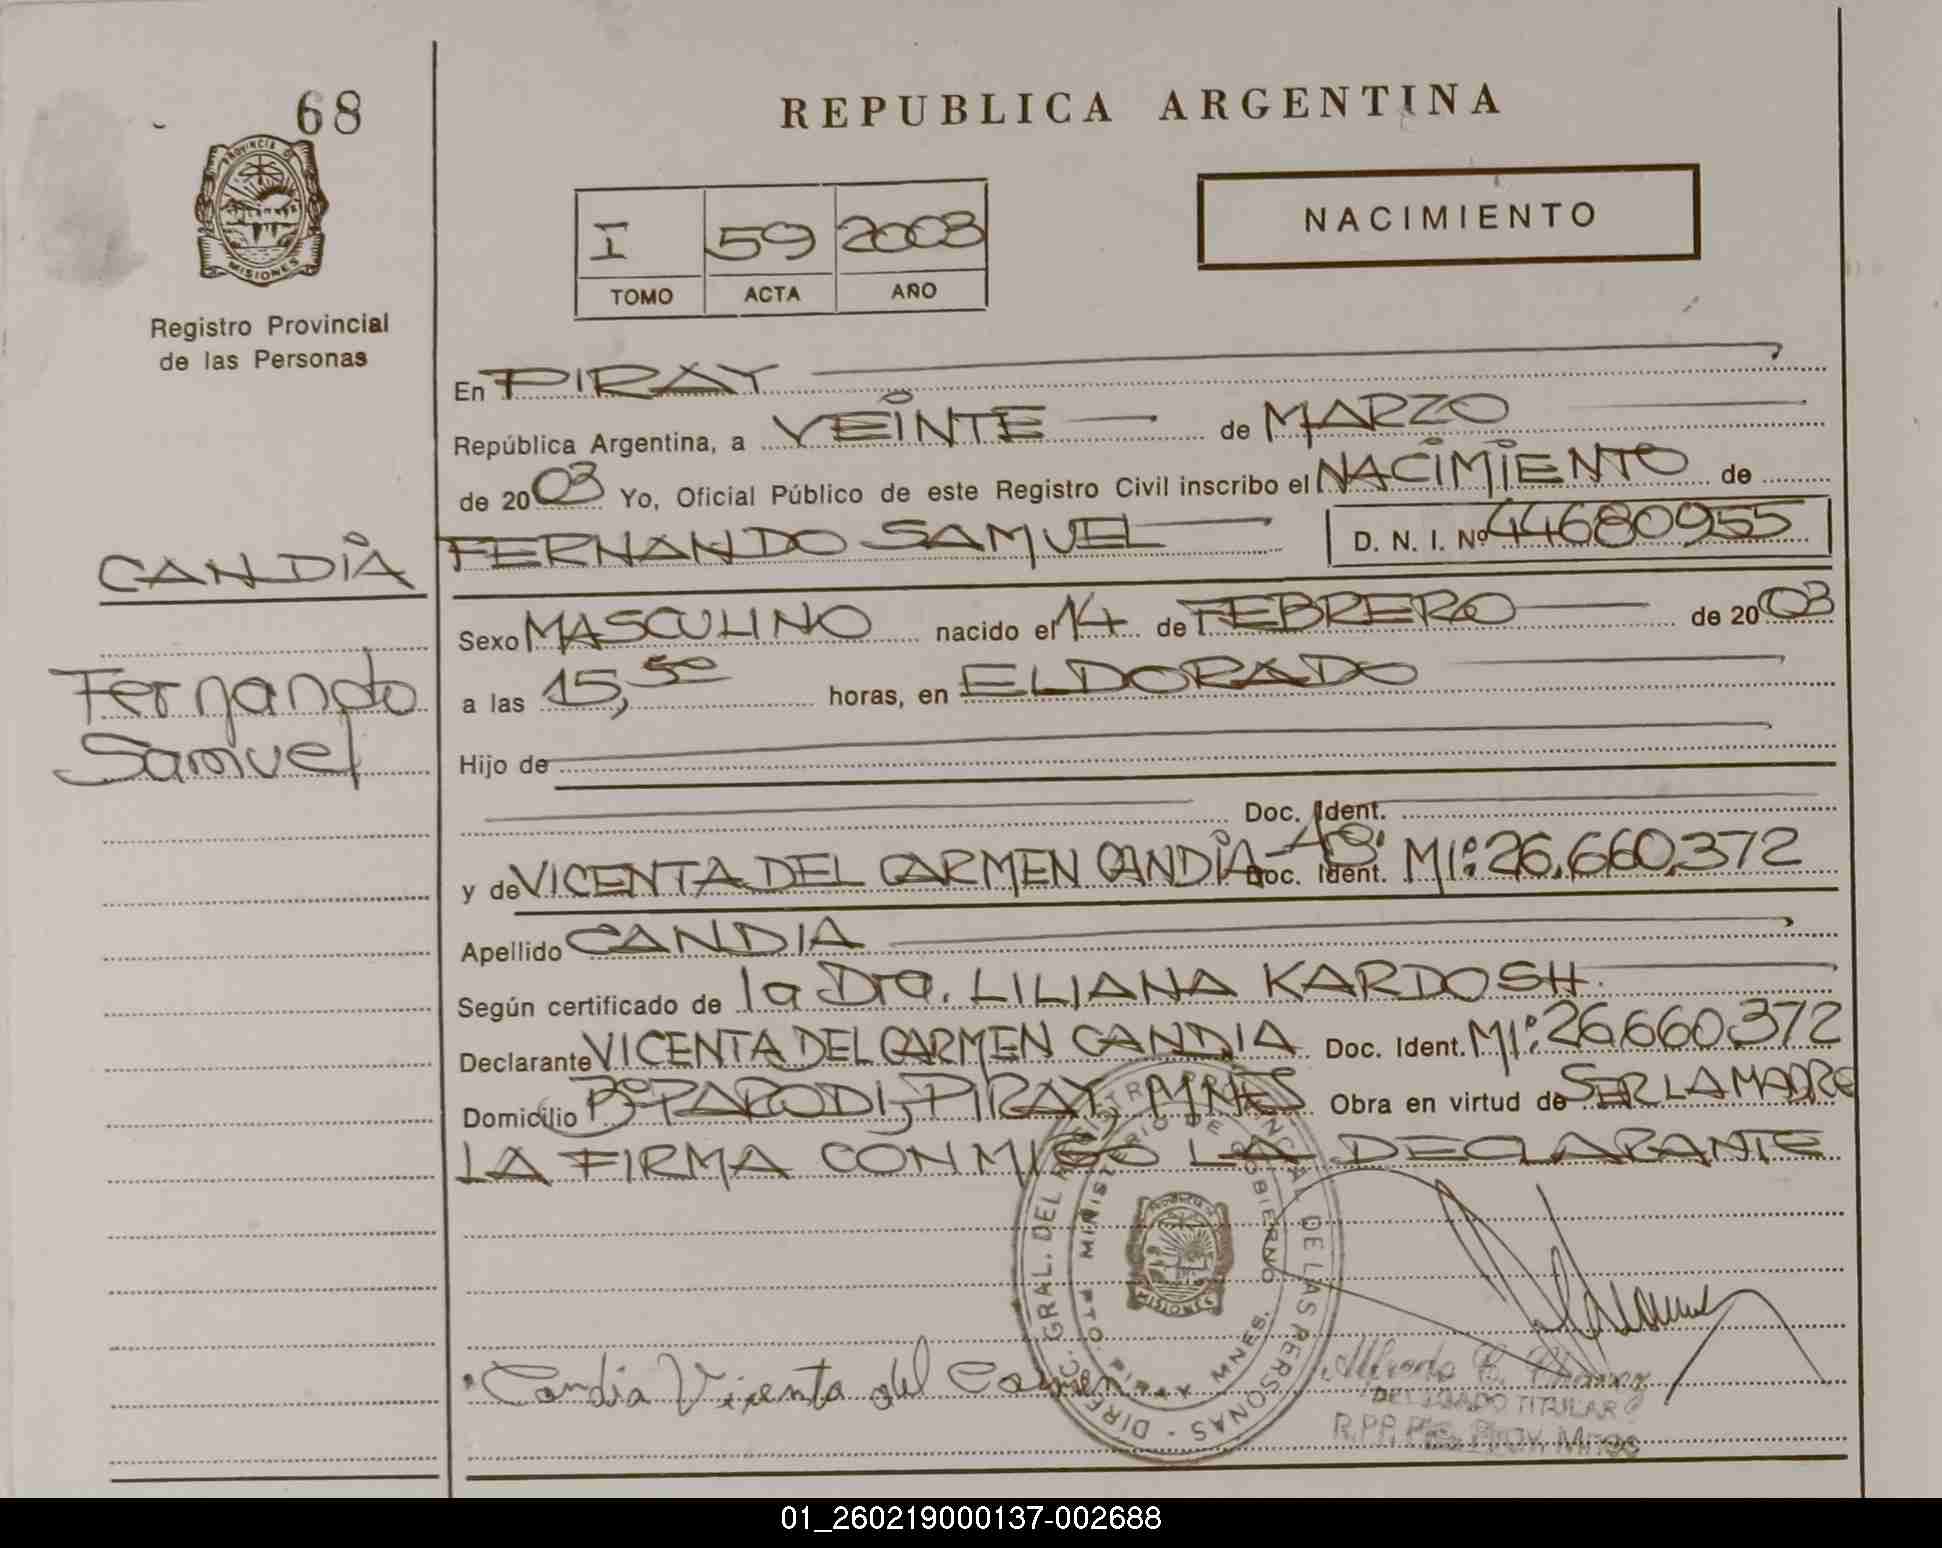 68
PROVINCIA D
MISIONES
Registro Provincial
de las Personas
REPUBLICA ARGENTINA
I 59 2003
TOMO ACTA AÑO
NACIMIENTO
En PIRAY
República Argentina, a VEINTE de MARZO
de 2003 Yo, Oficial Público de este Registro Civil inscribo el NACIMIENTO de
CANDIA
FERNANDO SAMUEL D. N. I. Nº 44680955
Sexo MASCULINO nacido el 14 de FEBRERO de 2003
Fernando
Samuel
a las 15,50 horas, en ELDORADO
Hijo de
Doc. Ident.
y de VICENTA DEL CARMEN CANDIA Doc. Ident. MI: 26.660.372
Apellido CANDIA
Según certificado de la Dra. LILIANA KARDOSH.
Declarante VICENTA DEL CARMEN CANDIA Doc. Ident. MI: 26.660.372
Domicilio Bº PARODI, PIRAY, MNES Obra en virtud de SER LA MADRE
LA FIRMA CONMIGO LA DECLARANTE
DIREC. GRAL. DEL REGISTRO PROVINCIAL DE LAS PERSONAS
MINISTERIO DE GOBIERNO
PTO. PIRAY MNES.
MISIONES
Candia Vicenta del Carmen
Alfredo
DELEGADO TITULAR
01_260219000137-002688